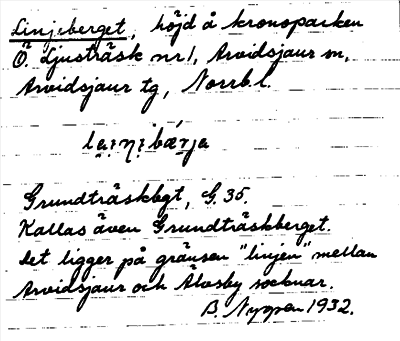 Linjeberget, höjd å kronoparken
Ö. Ljusträsk nr 1, Arvidsjaur sn,
Arvidsjaur tg, Norrb.l.
Grundträskbgt, G.35.
Kallas även Grundträskberget.
Det ligger på gränsen "linjen" mellan
Arvidsjaur och Älvsby socknar.
B. Nyman 1932.